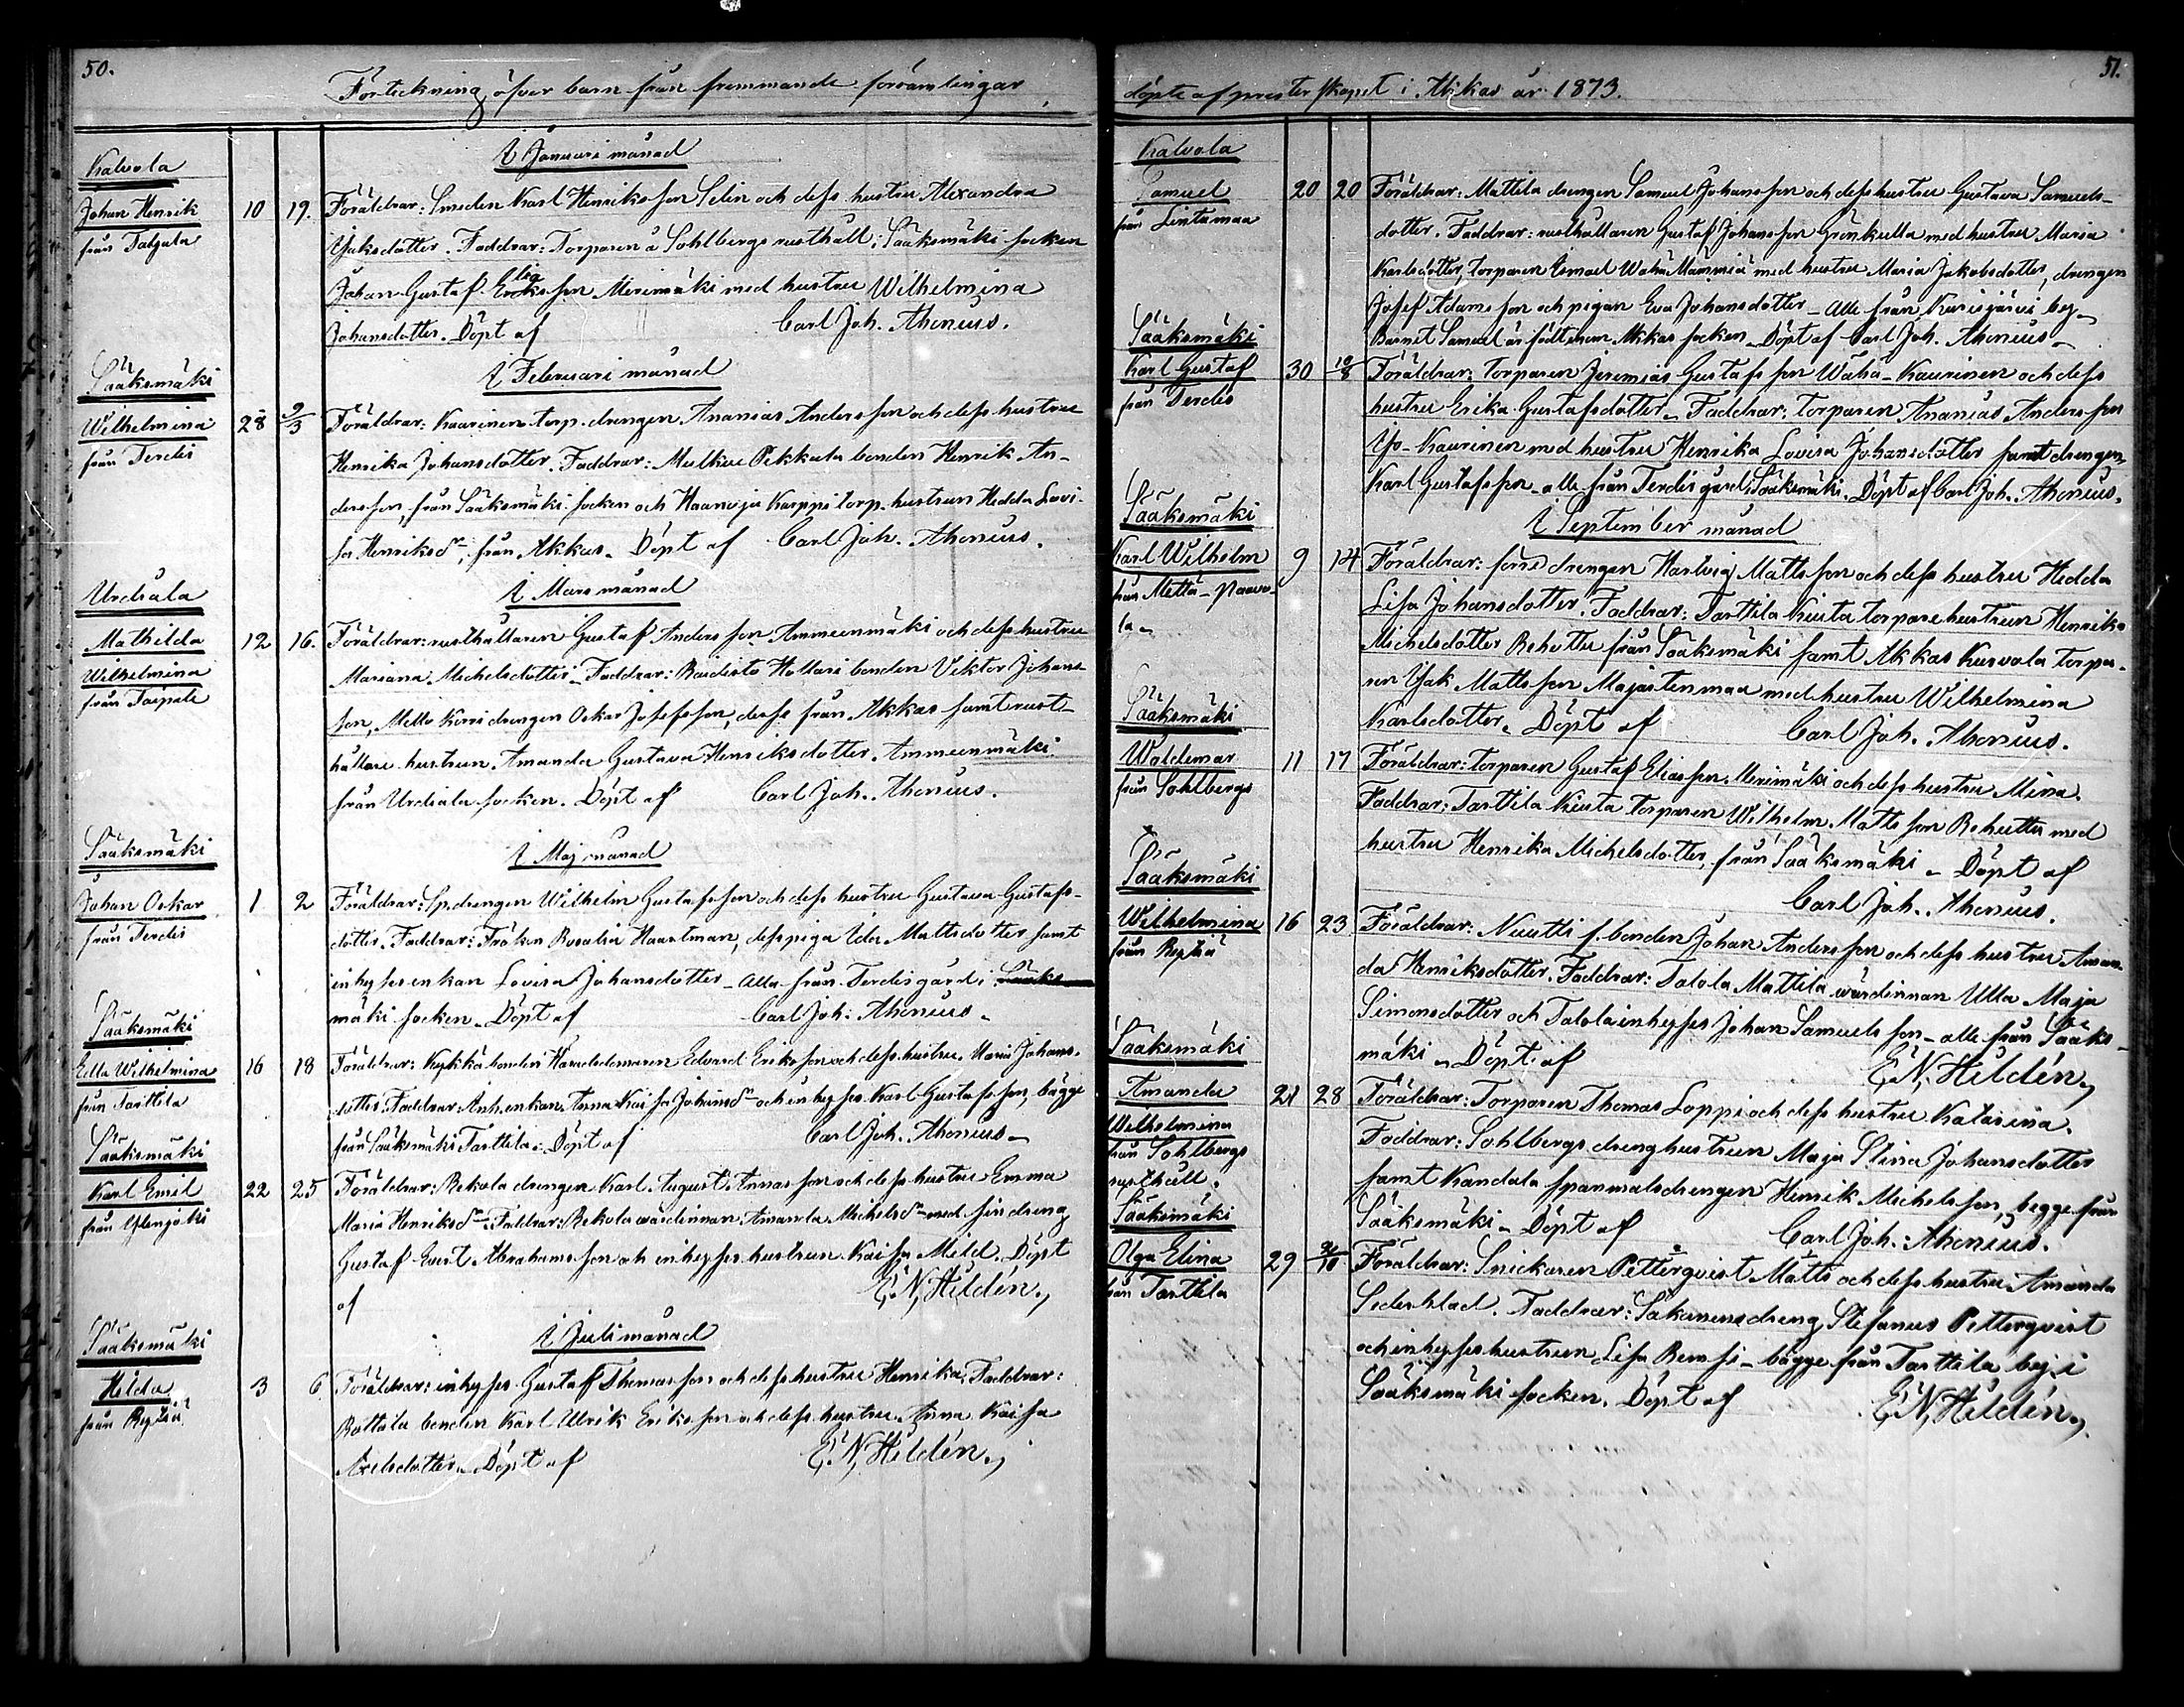 50.
Förteckning öfver barn från fremmande församlingar
I Januari månad
Kalvola
Johan Henrik 10 19. Föräldrar: Smeden Karl Henriksson Selin och dess hustru Alexandra
från Talgala
Isaksdotter. Faddrar: Torparen å Sohlbergs rusthåll i Sääksmäki socken
Johan Gustaf Eliasson Merimäki med hustru Wilhelmina
Johansdotter. Döpt af Carl Joh. Ahonius.
I Februari månad
Sääksmäki
Wilhelmina 28 9/3 Föräldrar: Kaurinen torp. drengen Ananias Andersson och dess hustru
från Terdis
Henrika Johansdotter. Faddrar: Pekkala bonden Henrik An-
dersson, från Sääksmäki socken och Haanoja Karppi torp. hustrun Hedda Lovi-
sa Henriksdr, från Akkas. Döpt af Carl Joh. Ahonius.
I Mars månad
Urdiala
Mathilda 12 16. Föräldrar: rusthållaren Gustaf Andersson Ammeenmäki och dess hustru
Wilhelmina
från
Mariana Michelsdotter. Faddrar: bonden Viktor Johans-
son, drengen Oskar Josefsson, dessa från Akkas samt rust-
hållare hustrun Amanda Gustava Henriksdotter Ammeenmäki
från Urdiala socken. Döpt af Carl Joh. Ahonius.
I Maj månad
Sääksmäki
Johan Oskar 1 2 Föräldrar: Sp. drengen Wilhelm Gustafsson och dess hustru Gustava Gustafs-
från Terdis
dotter. Faddrar: Fröken Rosalia Haartman, dess piga Ida Mattsdotter samt
inhyses enkan Lovisa Johansdotter - Alla från Terdis gård i Sääks-
mäki socken. Döpt af Carl Joh. Ahonius.
Sääksmäki
Edla Wilhelmina 16 18 Föräldrar: bonden Häradsdomaren Edvard Eriksson och dess hustru Maria Johans-
från Tarttila
dotter. Faddrar: Enkan Anna Kaisa Johansdr och inhyses Karl Gustafsson, bägge
från Sääksmäki Tarttila. Döpt af Carl Joh. Ahonius
Sääksmäki
Karl Emil 22 25 Föräldrar: Rekola drengen Karl August Annasson och dess hustru Emma
från Ylenjoki
Maria Henriksdr. Faddrar: Rekola wärdinnan Amanda Michelsdr med sin dreng
Gustaf Evert Abrahamsson och inhyses hustrun Kaisa Mild. Döpt
af E. N. Hildén.
I Juli månad
Sääksmäki
Hilda 3 6 Föräldrar: inhyses Gustaf Thomasson och dess hustru Henrika. Faddrar:
från
Rottila bonden Karl Ulrik Eriksson och dess hustru Anna Kaisa
Axelsdotter. Döpt af E. N. Hildén.
51.
döpte af presterskapet i Akkas år 1873.
Kalvola
Samuel 20 20 Föräldrar: Mattila drengen Samuel Johansson och dess hustru Gustava Samuels-
från Lintumaa
dotter. Faddrar: rusthållaren Gustaf Johansson Grönkulla med hustru Maria
Karlsdotter, torparen Wähä Mämmiä med hustru Maria Jakobsdotter, drengen
Josef Adamsson och pigan Eva Johansdotter - alla från Kurisjärvi by
Barnet Samuel är född inom Akkas socken. Döpt af Carl Joh. Ahonius
Sääksmäki
Karl Gustaf 30 10/8 Föräldrar: torparen Jeremias Gustafsson Wähä-Kaurinen och dess
från Terdis
hustru Erika Gustafsdotter. Faddrar: torparen Ananias Andersson
Yo-Kaurinen med hustru Henrika Lovisa Johansdotter samt drengen
Karl Gustafsson - alla från Terdis gård i Sääksmäki. Döpt af Carl Joh. Ahonius.
I September månad
Sääksmäki
Karl Wilhelm 9 14 Föräldrar: drengen Hartvig Mattsson och dess hustru Hedda
från Mettä-Paavo-
la
Lisa Johansdotter. Faddrar: Tarttila Kiuta torpare hustrun Henrika
Michelsdotter Rehutta från Sääksmäki samt Akkas Kurvola torpa-
ren Isak Mattsson Majastenmaa med hustru Wilhelmina
Karlsdotter. Döpt af Carl Joh. Ahonius.
Sääksmäki
Woldemar 11 17 Föräldrar: torparen Gustaf Eliasson Merimäki och dess hustru Mina.
från Sohlbergs
Faddrar: Tarttila Kiuta torparen Wilhelm Mattsson Rehutta med
hustru Henrika Michelsdotter, från Sääksmäki. Döpt af
Carl Joh. Ahonius.
Sääksmäki
Wilhelmina 16 23 Föräldrar: Nuutti f. bonden Johan Andersson och dess hustru Aman-
från
da Henriksdotter. Faddrar: Talola Mattila wärdinnan Ulla Maja
Simonsdotter och Talola inhyses Johan Samuelsson - alla från Sääks-
mäki. Döpt af E. N. Hildén.
Sääksmäki
Amanda 21 28 Föräldrar: Torparen Thomas Loppi och dess hustru Katarina.
Wilhelmina
från Sohlbergs
rusthåll.
Faddrar: Sohlbergs drenghustrun Maja Stina Johansdotter
samt Kandola spanmålsdrengen Henrik Michelsson, begge från
Sääksmäki. Döpt af Carl Joh. Ahonius.
Sääksmäki
Olga Elina 29 Föräldrar: Snickaren Petterqvist Matts och dess hustru Amanda
från Tarttila
Sederblad. Faddrar: dreng Stefanus Petterqvist
och inhyses hustrun Lisa Remsi - bägge från Tarttila by i
Sääksmäki socken. Döpt af E. N. Hildén.